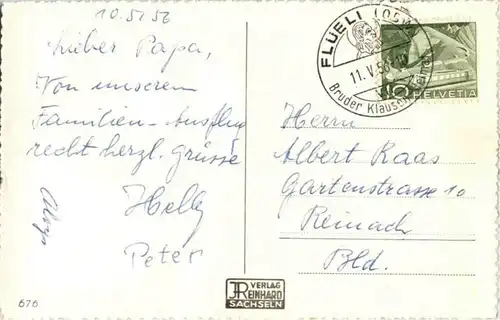 10.5.56
Lieber Papa,
Von unserem
Familien-Ausflug
recht herzl. Grüsse
Helly
Peter
FLÜELI (OBW)
11.V.56
Bruder Klausen
10
HELVETIA
Herrn
Albert Raas
Gartenstrasse 10
Reinach
Bld.
676
JR VERLAG
REINHARD
SACHSELN